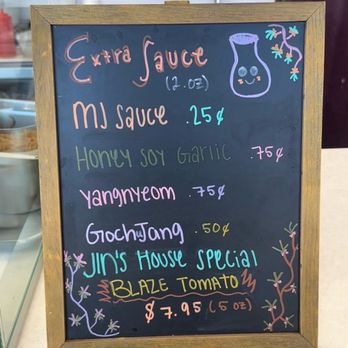 Extra Sauce
(2 oz)
MJ Sauce .25¢
Honey Soy Garlic .75¢
Yangnyeom .75¢
GochiJang .50¢
JIN'S House Special
BLAZE TOMATO
$7.95 (5 oz)